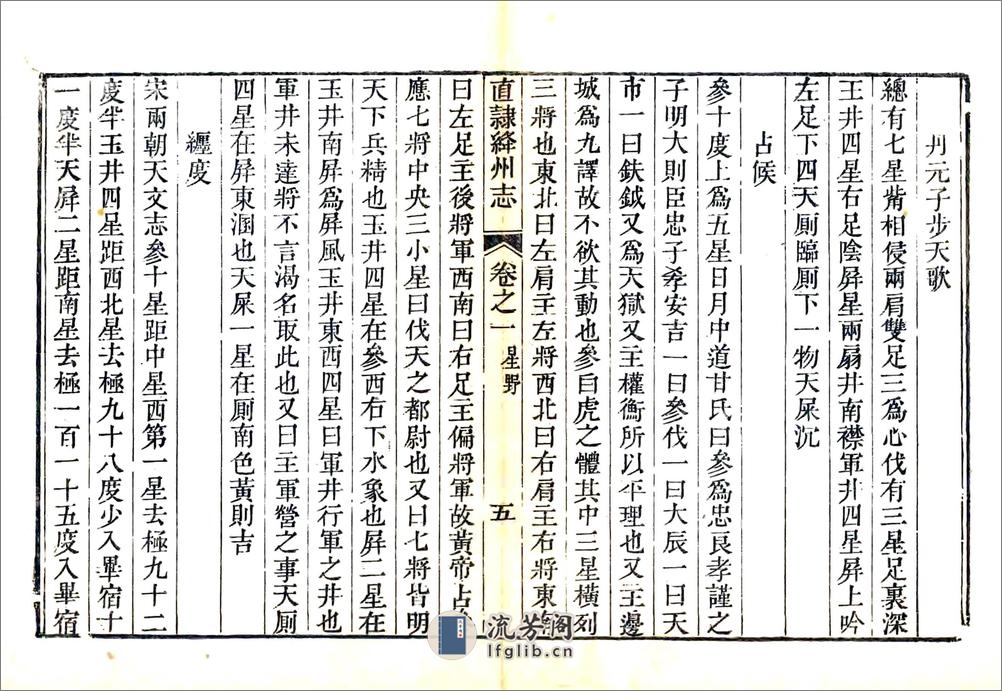 丹元子步天歌
總有七星觜相侵兩肩雙足三爲心伐有三星足裏深
玉井四星右足陰屛星兩扇井南襟軍井四星屛上吟
左足下四天厠臨厠下一物天屎沉
占候
參十度上爲五星日月中道甘氏曰參爲忠良孝謹之
子明大則臣忠子孝安吉一曰參伐一曰大辰一曰天
市一曰鈇鉞又爲天獄又主權衡所以平理也又主邊
城爲九譯故不欲其動也參白虎之體其中三星橫列
三將也東北曰左肩主左將西北曰右肩主右將東南
直隸絳州志
卷之一
星野
五
曰左足主後將軍西南曰右足主偏將軍故黃帝占參
應七將中央三小星曰伐天之都尉也又曰七將皆明
天下兵精也玉井四星在參西右下水象也屛二星在
玉井南屛爲屛風玉井東西四星曰軍井行軍之井也
軍井未達將不言渴名取此也又曰主軍營之事天厠
四星在屛東溷也天屎一星在厠南色黃則吉
纒度
宋兩朝天文志參十星距中星西第一星去極九十二
度半玉井四星距西北星去極九十八度少入畢宿十
一度半天屛二星距南星去極一百一十五度入畢宿
流芳閣
lfglib.cn